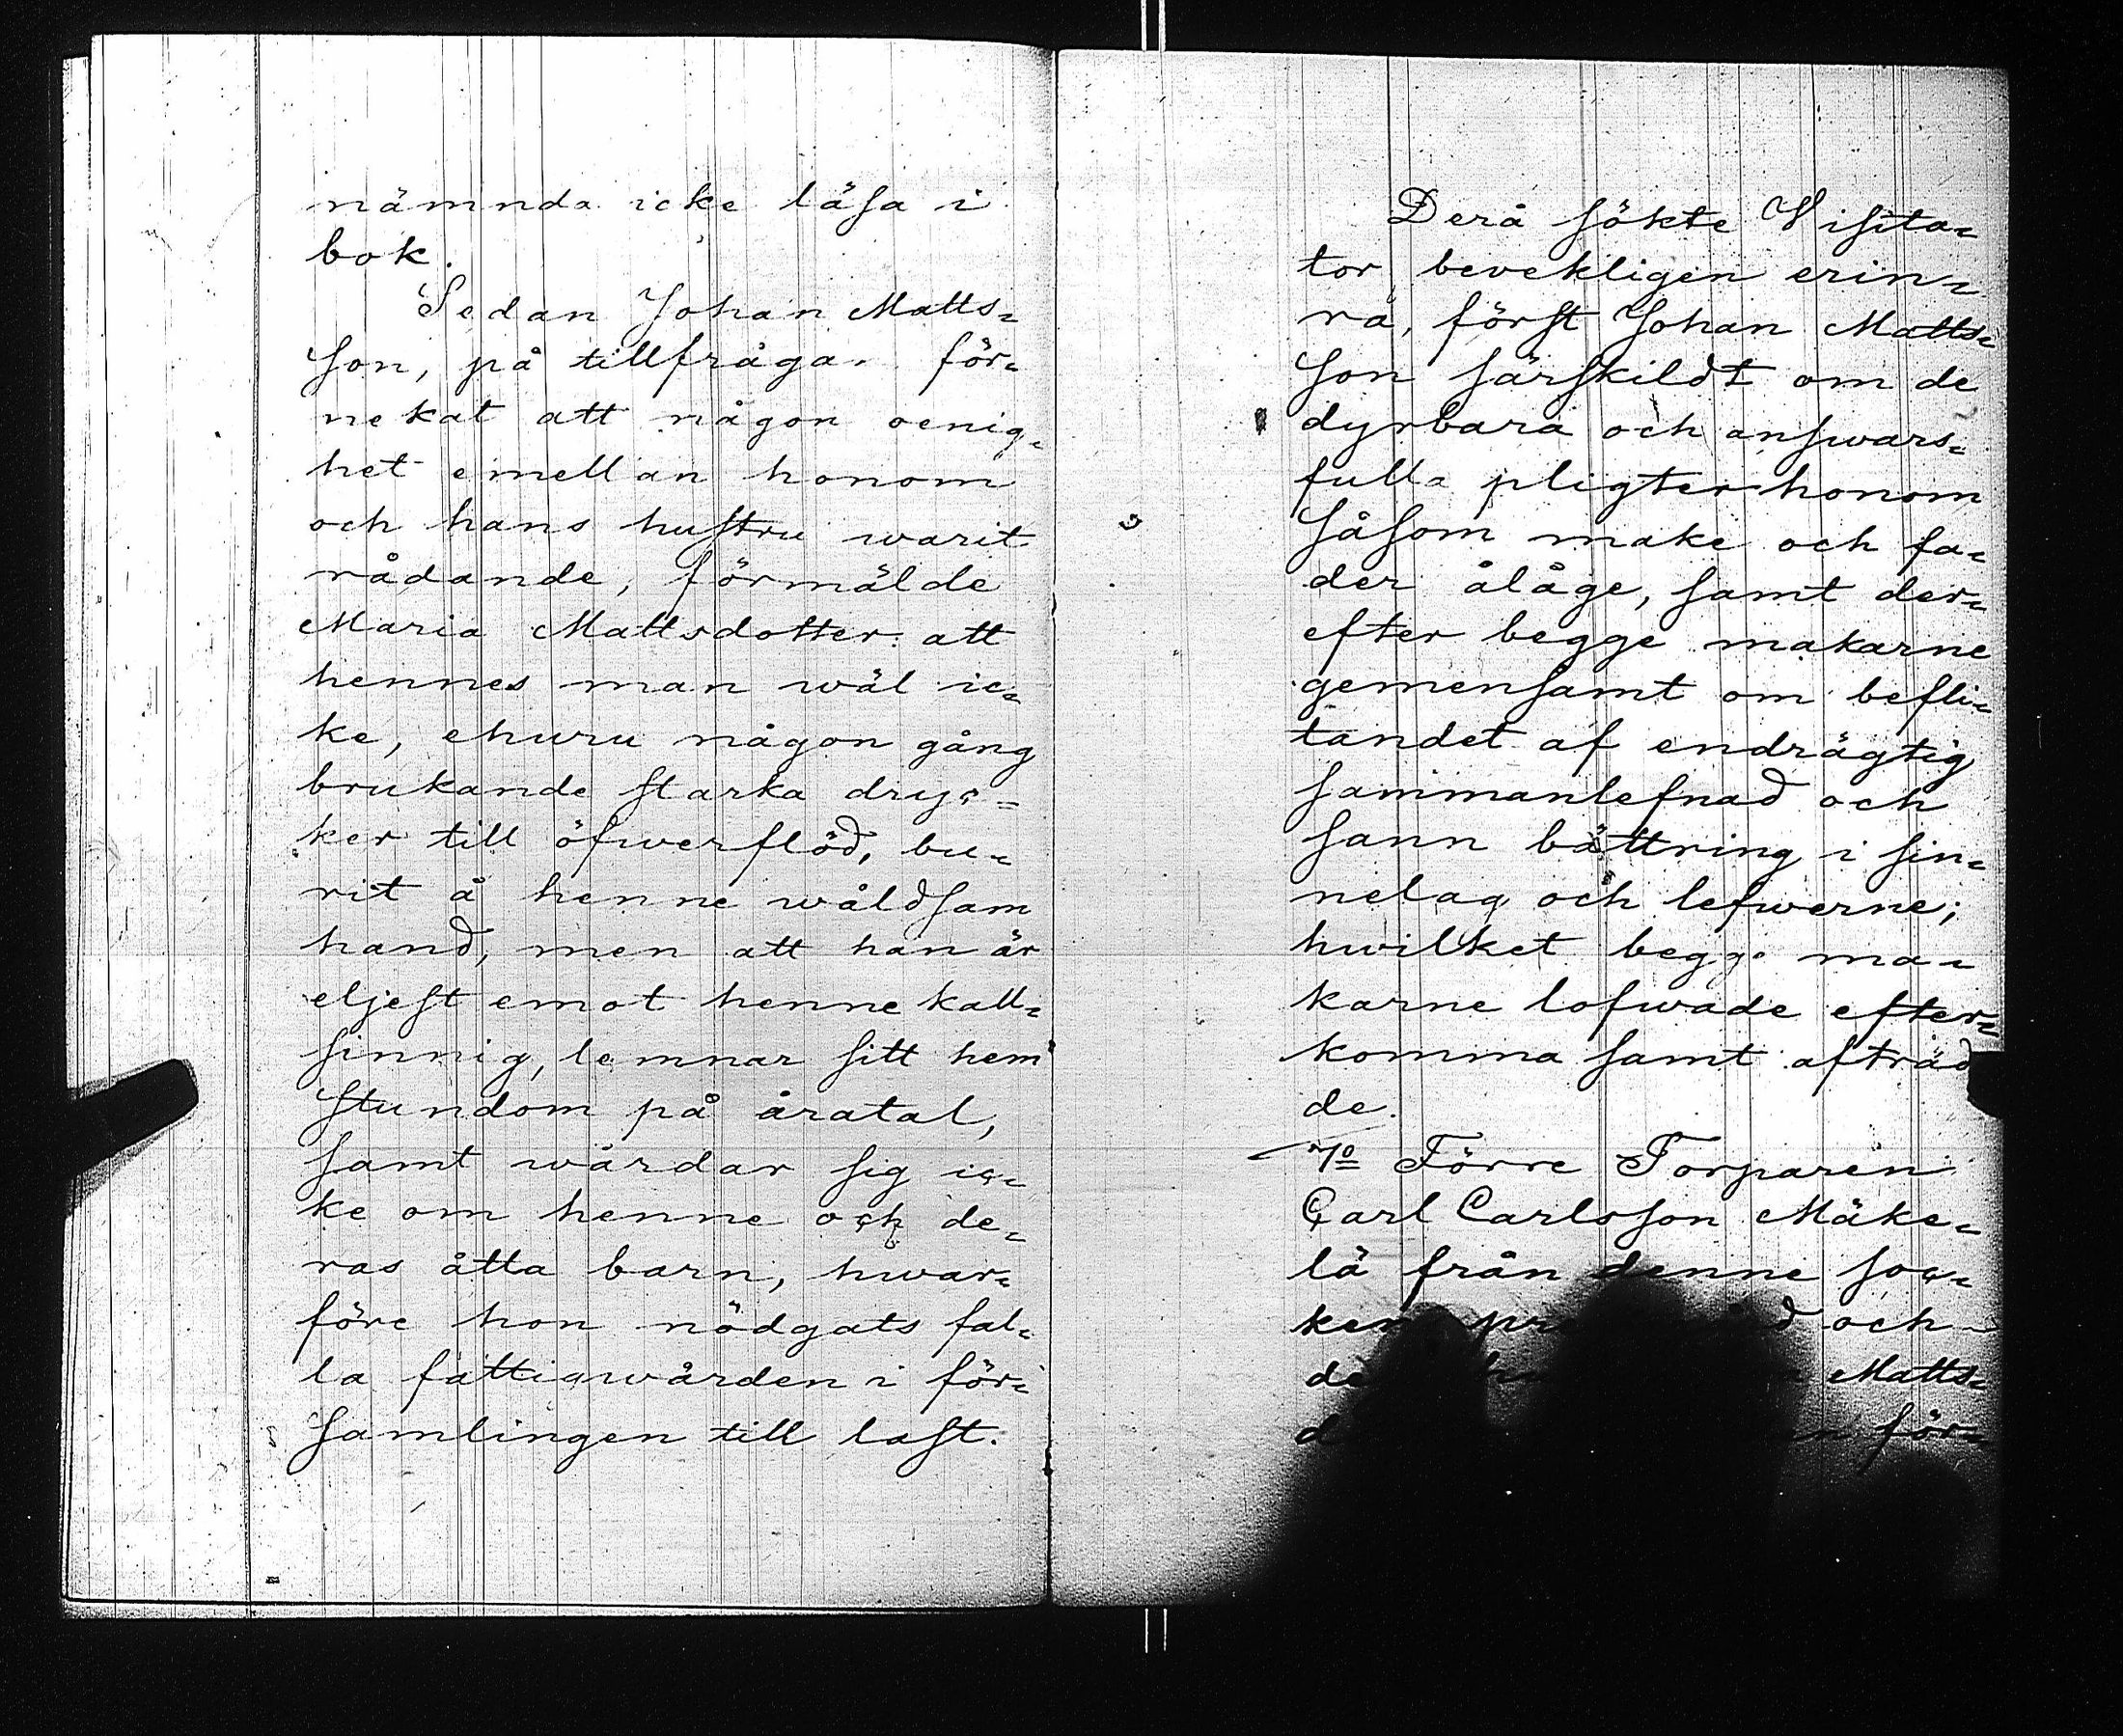 nämnda icke läsa i
bok.
Sedan Johan Matts-
son, på tillfrågan för-
nekat att någon oenig-
het emellan honom
och hans hustru warit
rådande, förmälde
Maria Mattsdotter att
hennes man wäl ic-
ke, ehuru någon gång
brukande starka dryc-
ker till öfwerflöd, bu-
rit å henne wåldsam
hand, men att han är
eljest emot henne kall-
sinnig, lemnar sitt hem
stundom på åratal,
samt wårdar sig ic-
ke om henne och de-
ras åtta barn, hwar-
före hon nödgats fal-
la fattigwården i för-
samlingen till last.
Derå sökte Visita-
tor bevekligen erin-
ra, först Johan Matts-
son särskildt om de
dyrbara och answars-
fulla pligter honom
såsom make och fa-
der ålåge, samt der-
efter begge makarne
gemensamt om befli-
tandet af endrägtig
sammanlefnad och
sann bättring i sin-
nelag och lefwerne;
hwilket begge ma-
karne lofwade efter-
komma samt afträd
de.
7o Förre Torparen
Carl Carlsson Mäke-
lä från denne soc-
ken och
Matts-
för-